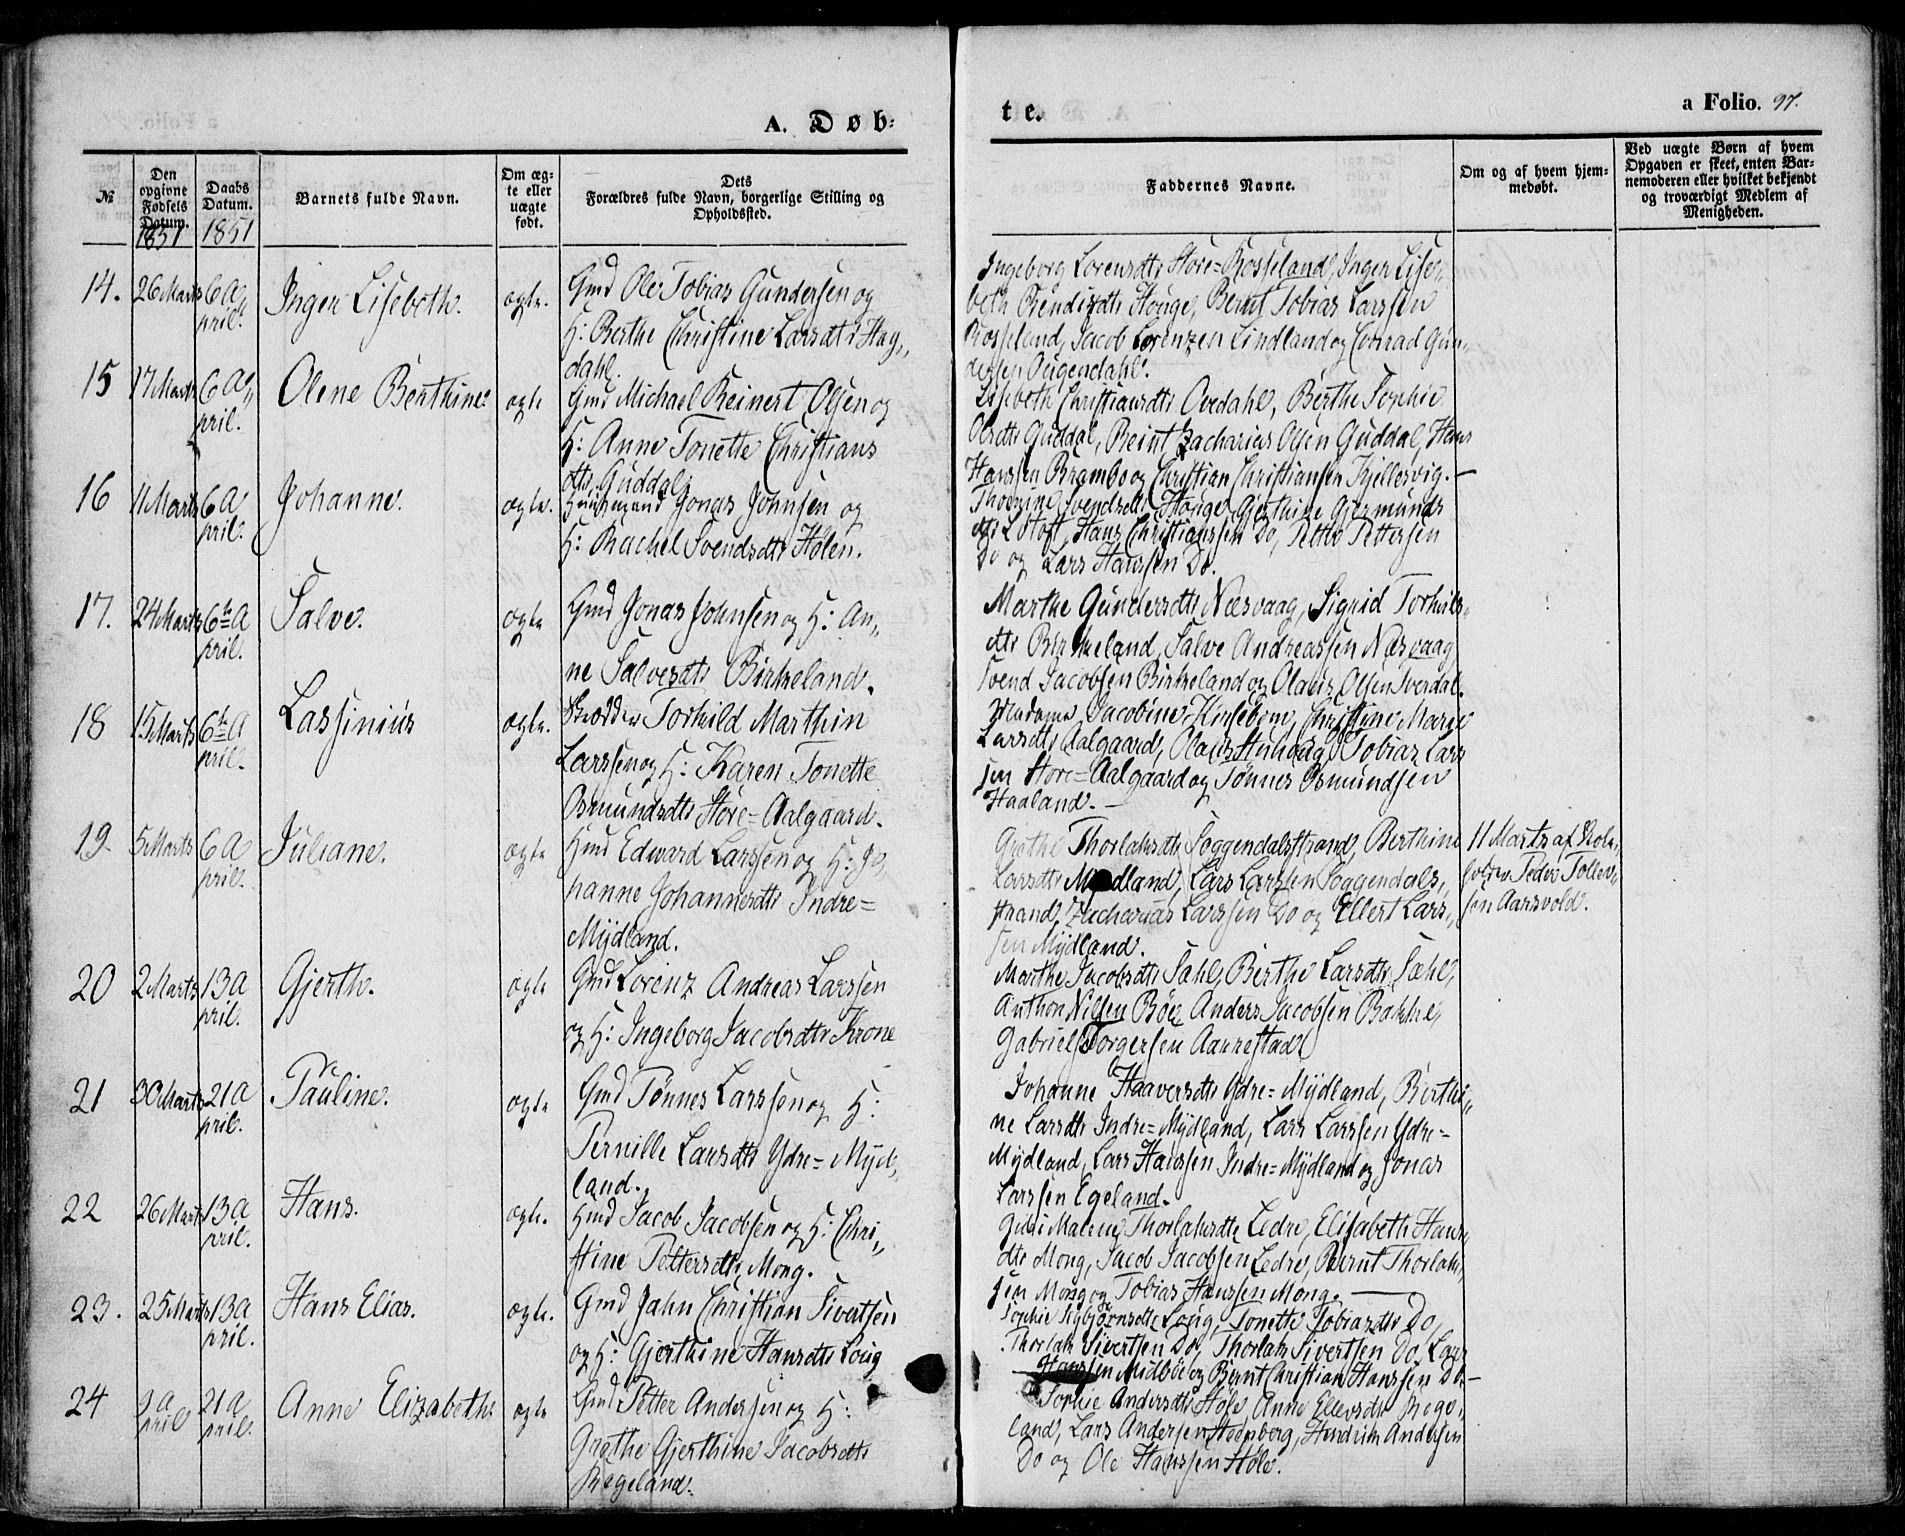 A. Døb=
te.
a Folio. 97.
№
Den opgivne Fødsels Datum.
1851
Daabs Datum.
1851
Barnets fulde Navn.
Om ægte eller uægte født.
Dets
Forældres fulde Navn, borgerlige Stilling og
Opholdssted.
Faddernes Navne.
Om og af hvem hjem-
medøbt.
Ved uægte Børn af hvem
Opgaven er skeet, enten Bar-
nemoderen eller hvilket bekjendt
og troværdigt Medlem af
Menigheden.
14. 26 Marts 6 A„
pril. Inger Lisebeth. ægte. Gmd Ole Tobias Gundersen og
H: Berthe Christine Larsdtr Hag„
dahl.
Ingeborg Lorensdtr Store=Rosseland, Inger Lise„
beth Bendixdtr Houge, Bernt Tobias Larssen
Rosseland, Jacob Lorenzen Lindland og Conrad Gun„
dersen Ougendahl.
15 17 Marts 6 A„
pril. Olene Berthine. ægte Gmd Michael Reinert Olsen og
H: Anne Tonette Christians
dtr Guddal.
Lisebeth Christiansdtr Ovedahl, Berthe Sophie
Olsdtr Guddal, Beint Zacharias Olsen Guddal, Hans
Hanssen Brambo og Christian Christiansen Kjellesvig.—
16 11 Marts 6 A
pril. Johanne. ægte. Huusmand Jonas Johnsen og
H: Rachel Svendsdtr Hølen.
Thorine Svendsdtr Houge, Gjerthine Gjermunds
dtr Lotoft, Hans Christianssen Do, Petter Pettersen
Do og Lars Hanssen Do.
17. 24 Marts 6te A
pril. Salve. ægte Gmd Jonas Johnsen og H: An„
ne Salvesdtr Birkeland.
Marthe Gundersdtr Næsvaag, Sigrid Torkils„
dtr Birkeland, Salve Andreassen Næsvaag
Svend Jacobsen Birkeland og Olaus Olsen Sverdal.
18 15 Marts 6te A
pril. Lassinius ægte. Skrædder Torkild Marthin
Larssen og H: Karen Tonette
Osmundsdtr Store=Aalgaard.
Madame Jacobine Christine Marie
Larsdtr Aalgaard, Tobias Lars
sen Store=Aalgaard og Tønnes Osmundsen
Haaland.—
19. 5 Marts 6 A
pril. Juliane. ægte Hmd Edward Larssen og H: Jo„
hanne Johannesdtr Indre=
Mydland.
Grethe Thorlaksdtr Soggendalsstrand, Berthine
Larsdtr Mydland, Lars Larssen Soggendals„
strand, Zacharias Larssen Do og Ellert Lars„
sen Mydland.
11 Marts af Skole„
holder Peder Tollev„
sen Aarsvold.
20 2 Marts 13 A
pril. Gjerth. ægte Gmd Lorenz Andreas Larssen
og H: Ingeborg Jacobsdtr Krone
Marthe Jacobsdtr Sæhl, Berthe Larsdtr Sæhl,
Anthon Nilsen Böe Anders Jacobsen Bakke,
Gabriel Torgersen Aanestad
21 30 Marts 21 A
pril. Pauline. ægte Gmd Tønnes Larssen og H:
Pernille Larsdtr Ydre=Myd„
land.
Johanne Haaversdtr Ydre=Mydland, Berthi„
ne Larsdtr Indre=Mydland, Lars Larssen Ydre=
Mydland, Lars Hanssen Indre=Mydland og Jonas
Larssen Egeland.
22 26 Marts 13 A
pril. Hans. ægte. Hmd Jacob Jacobsen og H: Chri„
stine Pettersdtr Mong.
Malene Thorlaksdtr Ledre, Elisabeth Hans
dtr Mong, Jacob Jacobsen Ledre, Bernt Thorlak„
sen Mong og Tobias Hanssen Mong.—
23. 25 Marts 13 A
pril. Hans Elias. ægte. Gmd Jahn Christian Sivertsen
og H: Gjerthine Hansdtr Loug
Sophie Sigbjørnsdtr Loug, Tonette Tobiasdtr Do,
Thorlak Sivertsen Do, Thorlak Sivertsen Do Lars
Hanssen Midbøe og Bernt Christian Hanssen Do.—
24 9 A
pril 21 A
pril. Anne Elizabeth. ægte Gmd Petter Andersen og H:
Grethe Gjerthine Jacobsdtr
Regeland.
Sophie Andersdtr Høle, Anne Ellevsdtr Rege„
land, Lars Andersen, Hendrik Andersen
Do og Ole Hanssen Høle.